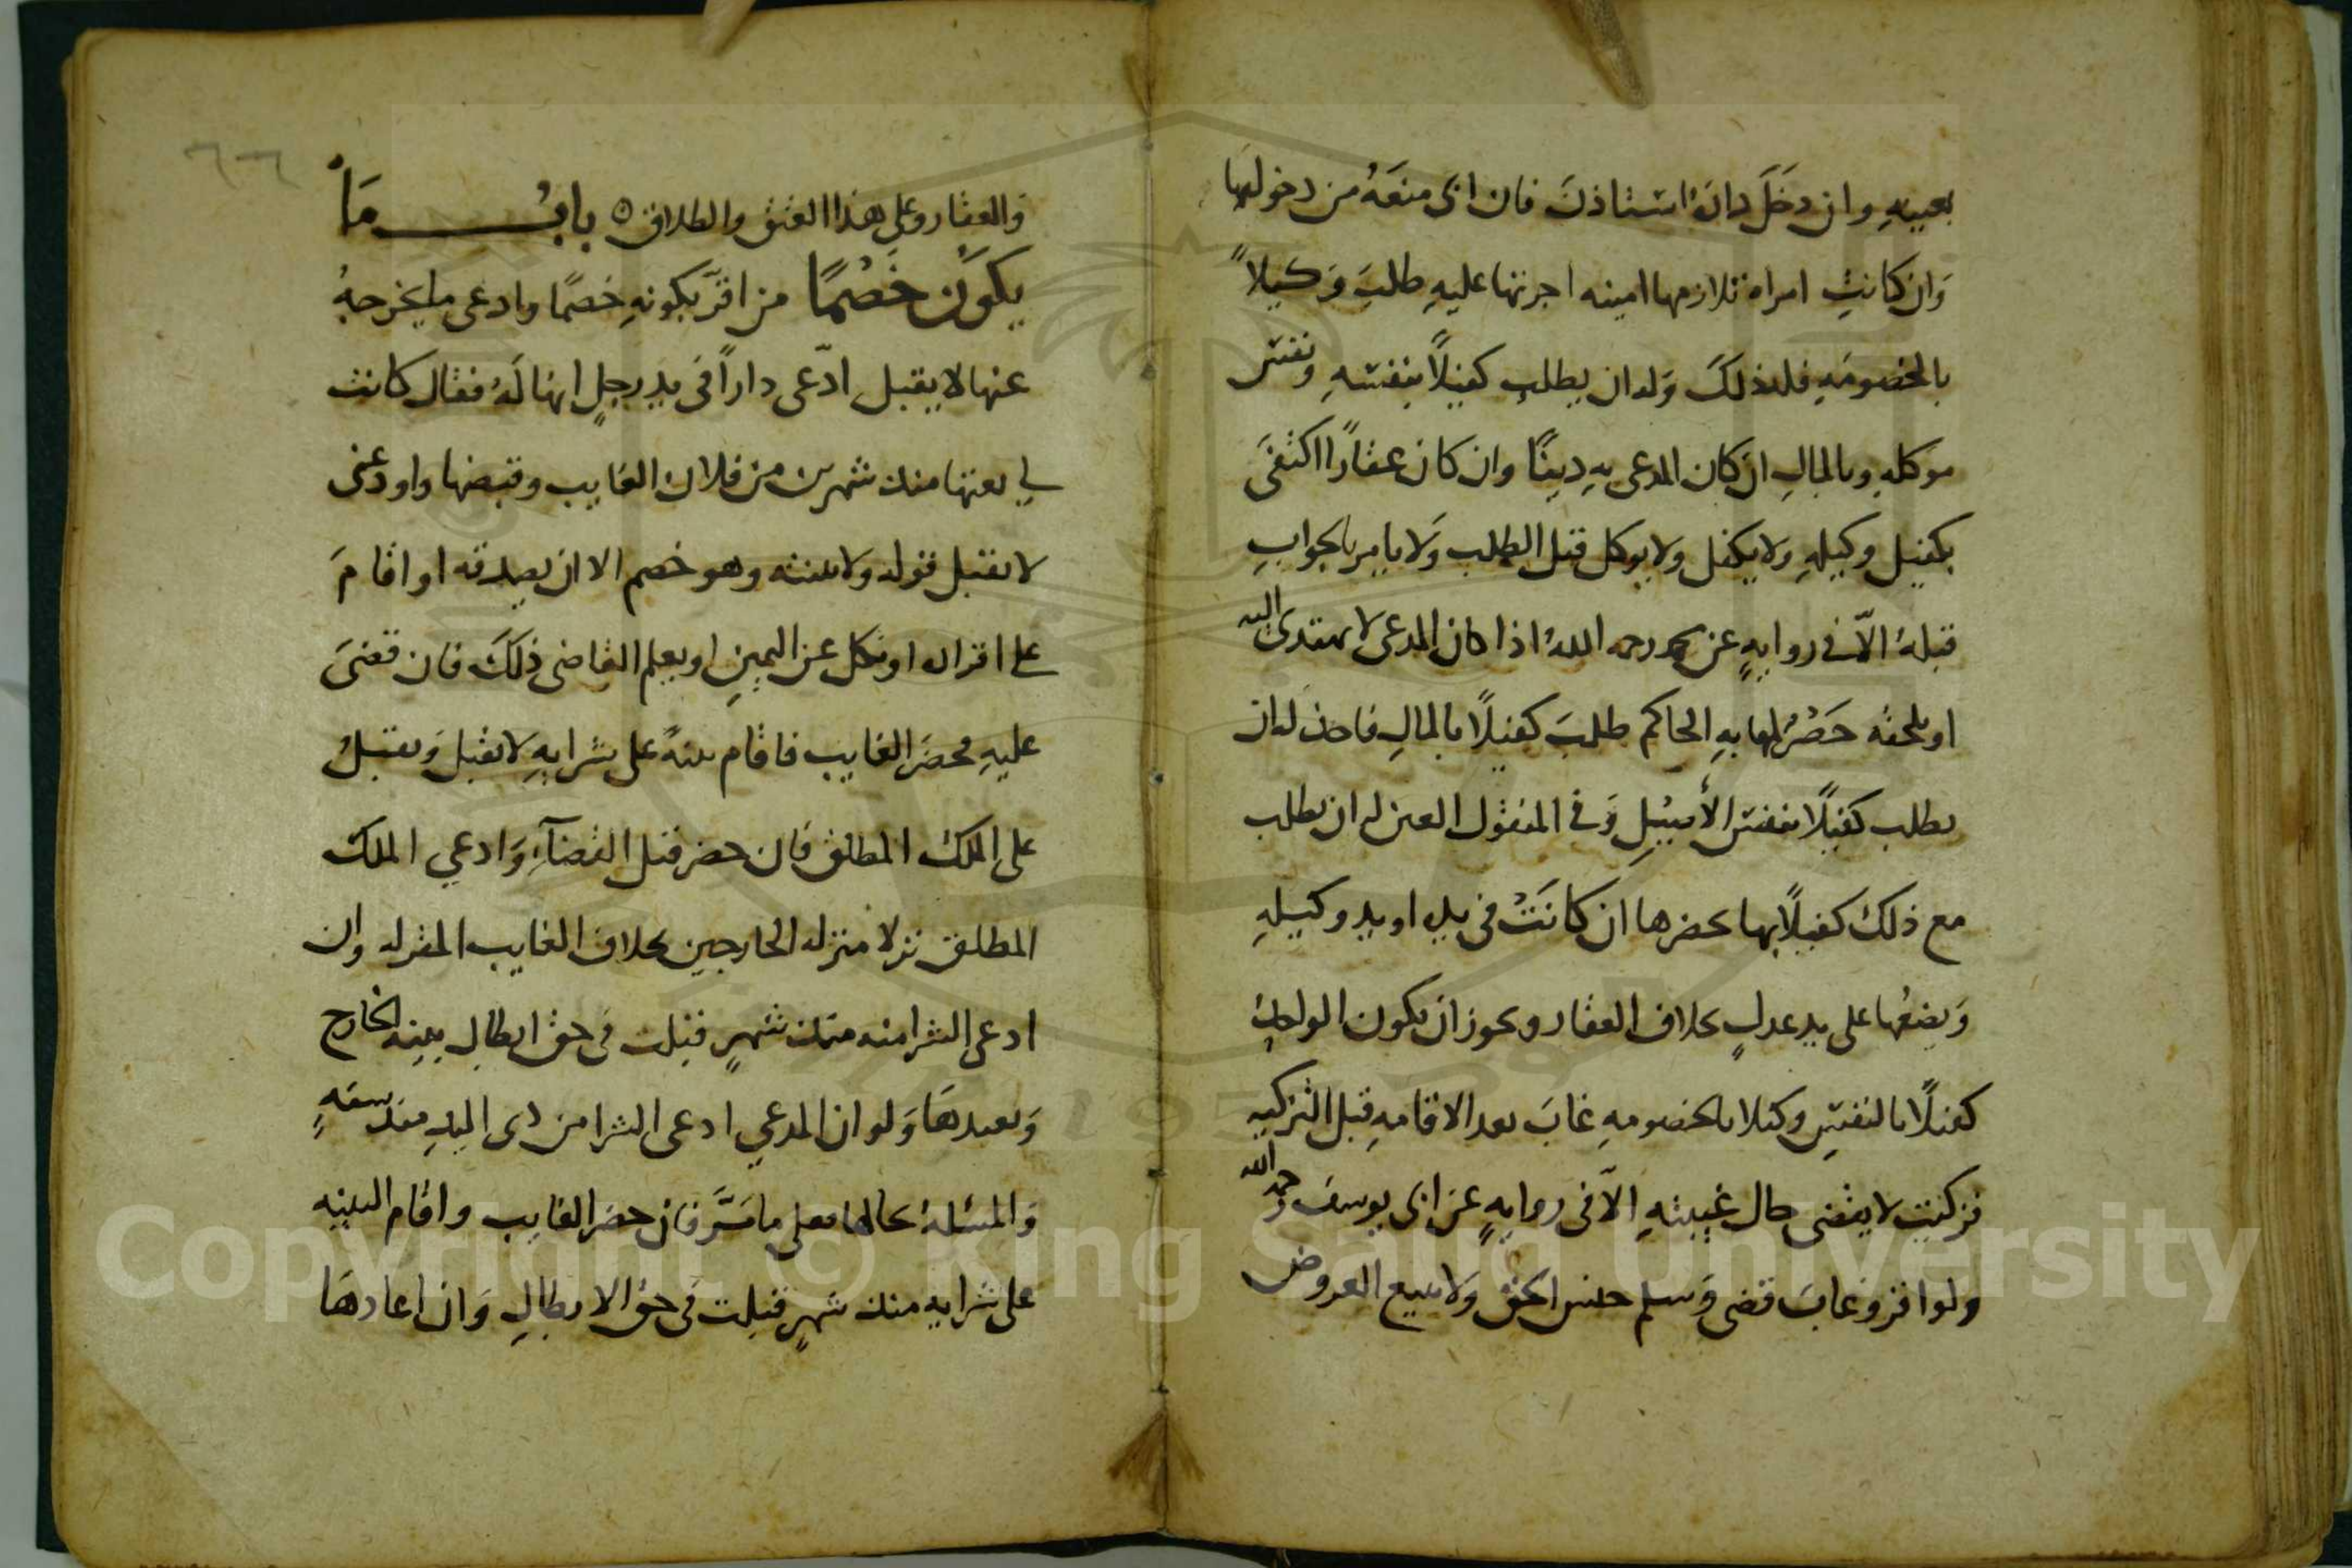 بعينه وان دخَلَ داره استاذن فان ابى منعَهُ من دخولها
وَان كانت امراه تلازمها امينه اجرتها عليهِ طلبَ وَكيلاً
بالخصومَهِ فله ذلكَ وَله ان يطلب كفيلاً بنفسهِ ونفس
موكلهِ وبالمالِ ان كان المدعى بهِ دينًا وان كان عقارًا اكتفىَ
بكفيل وكيلهِ ولا يكفل ولا يوكل قبل الطلب وَلا يامر بالجوابِ
قبلهُ الاّ في روايهٍ عن محمد رحمه اللهُ اذا كان المدعى لا يهتدى اليه
او يلحقه حَصْر لمهابهِ الحاكم طلبَ كفيلاً بالمالِ فاخذ له ان
يطلب كفيلاً بنفس الأصيلِ وَفى المنقول العين له ان يطلب
مع ذلك كفيلاً بها يحضرها ان كانَتْ فى يده او يد وكيلهِ
وَيضعُها على يد عدلٍ بخلاف العقار ويجوز ان يكون الواحدُ
كفيلاً بالنفسِ وكيلا بالخصومهِ غابَ بعد الاقامهِ قبل التزكيهِ
فزكيت لا يقضى حال غيبتهِ الاّ فى روايهٍ عن ابى يوسف رحمه الله
ولو اقر وغابَ قضى وَسلم جنس الحق وَلا يبيع العروض
وَالعقار وعلى هذا العتق والطلاق ٥ بابُ مَا
يكوُن خَصْمًا من اقرّ بكونهِ خصمًا وادعى ما يخرجهُ
عنها لا يقبل ادّعى داراً فى يد رجلٍ انها لَهُ فقال كانت
لى بعتها منذ شهرين من فلان الغايب وقبضها واودعنى
لا يقبل قوله ولا بينته وهو خصم الا ان يصدقه او اقامَ
على اقراره او نكل عن اليمينِ او يعلم القاضى ذلكَ فان قضىَ
عليهِ فحضرَ الغايب فاقام بينهً على شرايهِ لا يقبل وَيقبلُ
على الملك المطلق فان حضر قبل القضآءِ وَادعي الملك
المطلق نزلا منزله الخارجين بخلاف الغايب المقر له وان
ادعى الشرا منه منذ شهرٍ قبلت فى حق ابطال بينه الخارج
وَيعيدهَا وَلو ان المدعي ادعى الشرا من ذى اليدِ منذ سنهٍ
وَالمسئلهُ بحالها فعلى ما مَرَّ فان حضر الغايب واقام البينه
على شرايه منذ شهرٍ قبلت فى حق الابطالِ وَان اعادهَا
٦٦
Copyright © King Saud University
1957